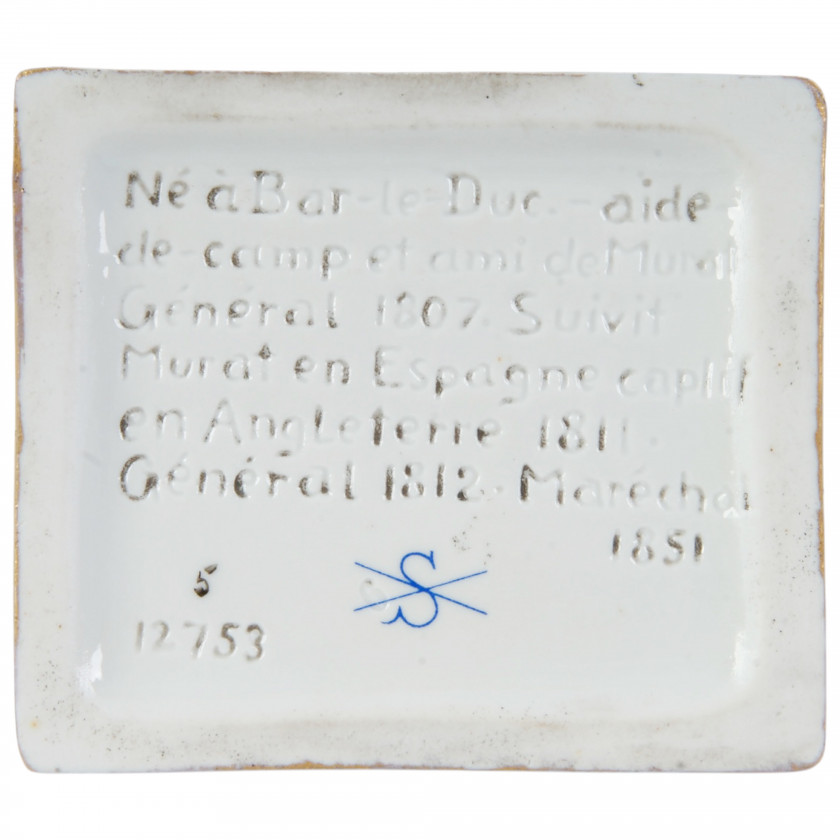 Né à Bar-le-Duc.-aide-
de-camp et ami de Murat
Général 1807. Suivit
Murat en Espagne captif
en Angleterre 1811.
Général 1812. Maréchal
1851
5
S
12753